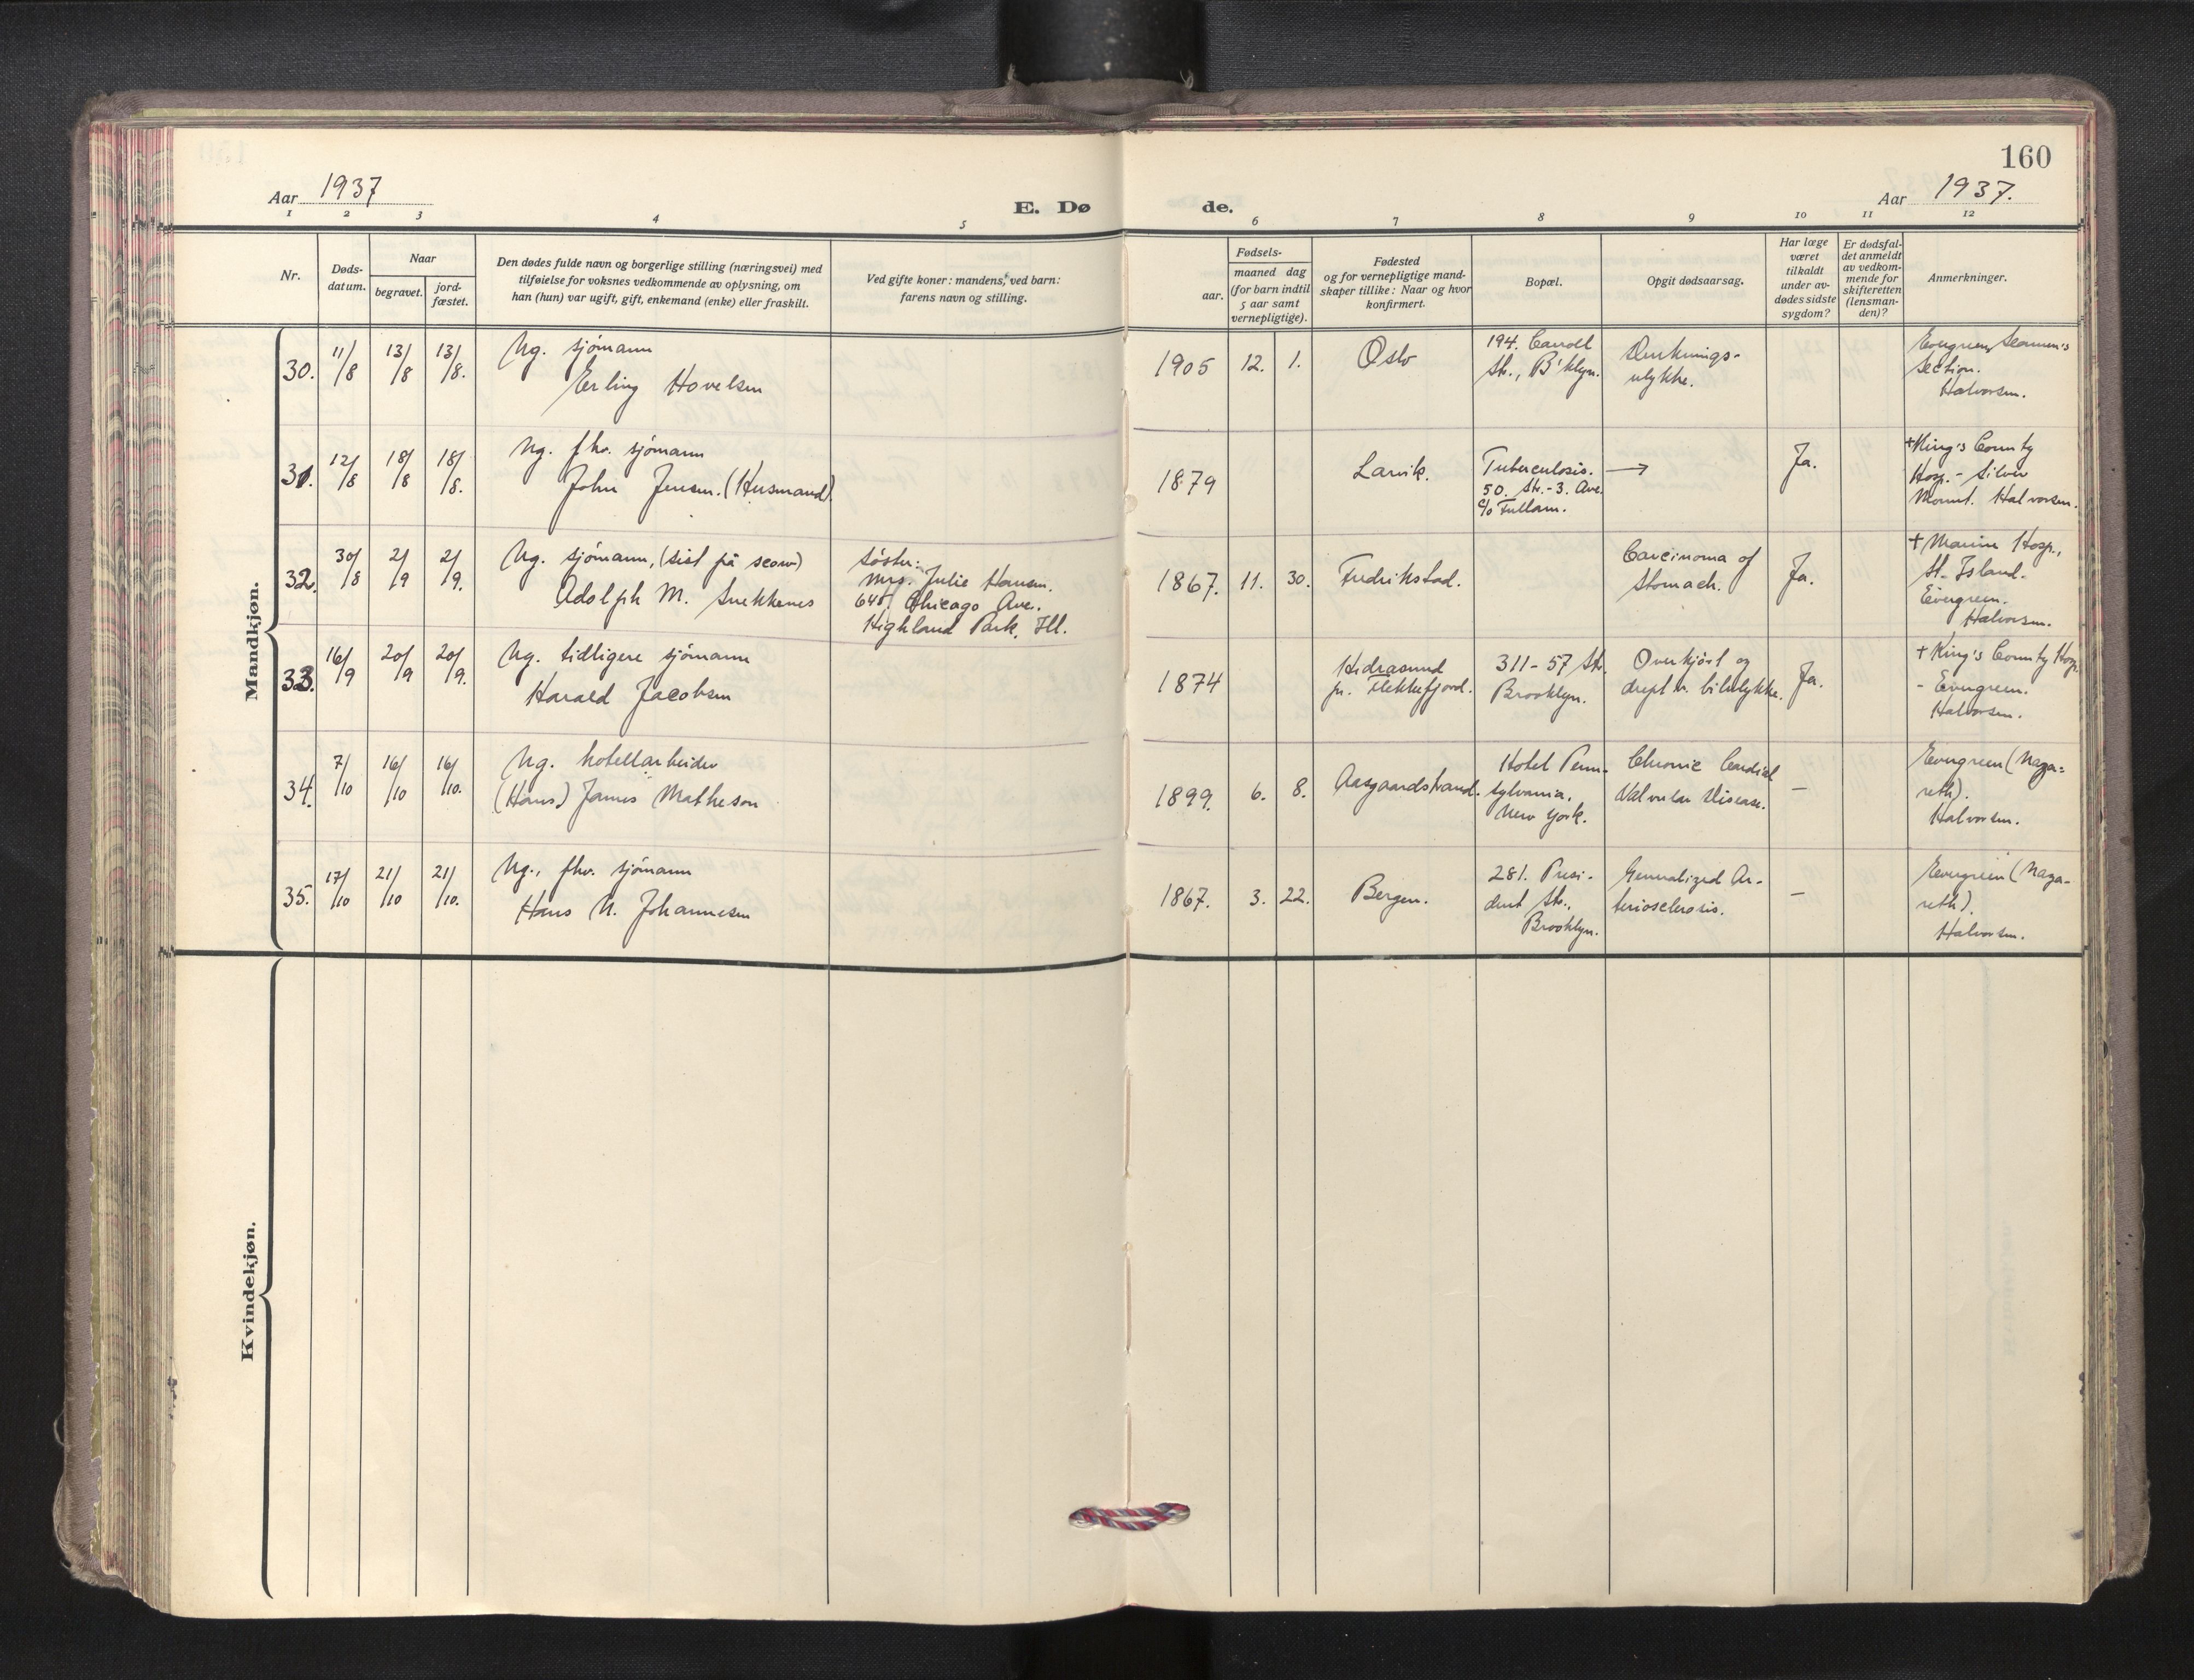 160
Aar 1937
Aar 1937.
E. Dø de.
1 2 3 4 5 6 7 8 9 10 11 12
Nr.
Døds-
datum.
Naar
begravet.
jord-
fæstet.
Den dødes fulde navn og borgerlige stilling (næringsvei) med
tilføielse for voksnes vedkommende av oplysning, om
han (hun) var ugift, gift, enkemand (enke) eller fraskilt.
Ved gifte koner: mandens, ved barn:
farens navn og stilling.
Fødsels-
aar.
maaned dag
(for barn indtil
5 aar samt
vernepligtige).
Fødested
og for vernepligtige mand-
skaper tillike: Naar og hvor
konfirmert.
Bopæl.
Opgit dødsaarsag.
Har læge
været
tilkaldt
under av-
dødes sidste
sygdom?
Er dødsfal-
det anmeldt
av vedkom-
mende for
skifteretten
(lensman-
den)?
Anmerkninger.
Mandkjøn.
30. 11/8 13/8 13/8.
Ug. sjömann
Erling Hovelsen
1905 12. 1.
Oslo
194. Carroll
Str., B'klyn.
Druknings-
ulykke.
Evergreen, Seamen's
Section.
Halvorsen.
31. 12/8 18/8 18/8.
Ug. fhv. sjömann
John Jensen. (Husmand)
1879
Larvik.
Tuberculosis. →
50. Str. - 3. Ave.
c/o Fullam.
Ja.
+ King's County
Hosp. - Silver
Mount. Halvorsen.
32. 30/8 2/9 2/9.
Ug. sjömann, (sist på scow)
Adolph M. Snekkenes
Söster:
Mrs. Julie Hansen.
648. Chicago Ave.
Highland Park, Ill.
1867. 11. 30.
Fredrikstad.
Carcinoma of
Stomach.
Ja.
+ Marine Hosp.,
St. Island.
Evergreen.
Halvorsen.
33. 16/9 20/9 20/9.
Ug. tidligere sjömann
Harald Jacobsen
1874
Hidrasund
pr. Flekkefjord.
311 - 57 Str.
Brooklyn.
Overkjört og
drept v. bilulykke.
Ja.
+ King's County Hosp.
- Evergreen.
Halvorsen.
34. 7/10 16/10 16/10.
Ug. hotellarbeider
(Hans) James Matheson
1899. 6. 8.
Aasgaardstrand.
Hotel Penn-
sylvania,
New York.
Chronic Cardial
Valvular Disease.
–
Evergreen (Naza-
reth).
Halvorsen.
35. 17/10 21/10 21/10.
Ug., fhv. sjömann
Hans N. Johannesen
1867. 3. 22.
Bergen.
281. Presi-
dent Str.,
Brooklyn.
Generalized Ar-
teriosclerosis.
–
Evergreen (Naza-
reth).
Halvorsen.
Kvindekjøn.